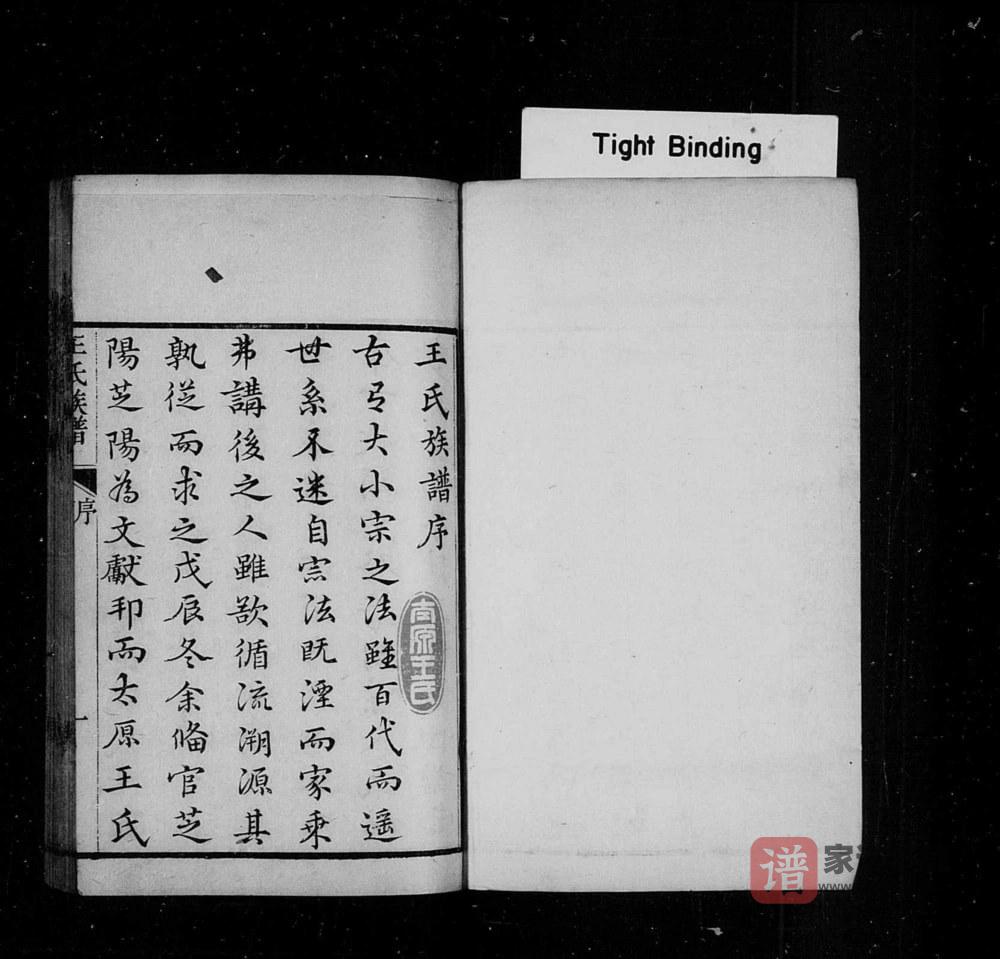 Tight Binding
王氏族譜序
古者大小宗之法雖百代而遥
世系不迷自宗法既湮而家乗
弗講後之人雖欲循流溯源其
孰從而求之戊辰冬余備官芝
陽芝陽為文獻邦而太原王氏
太原王氏
王氏族譜
序
一
谱
家
www.